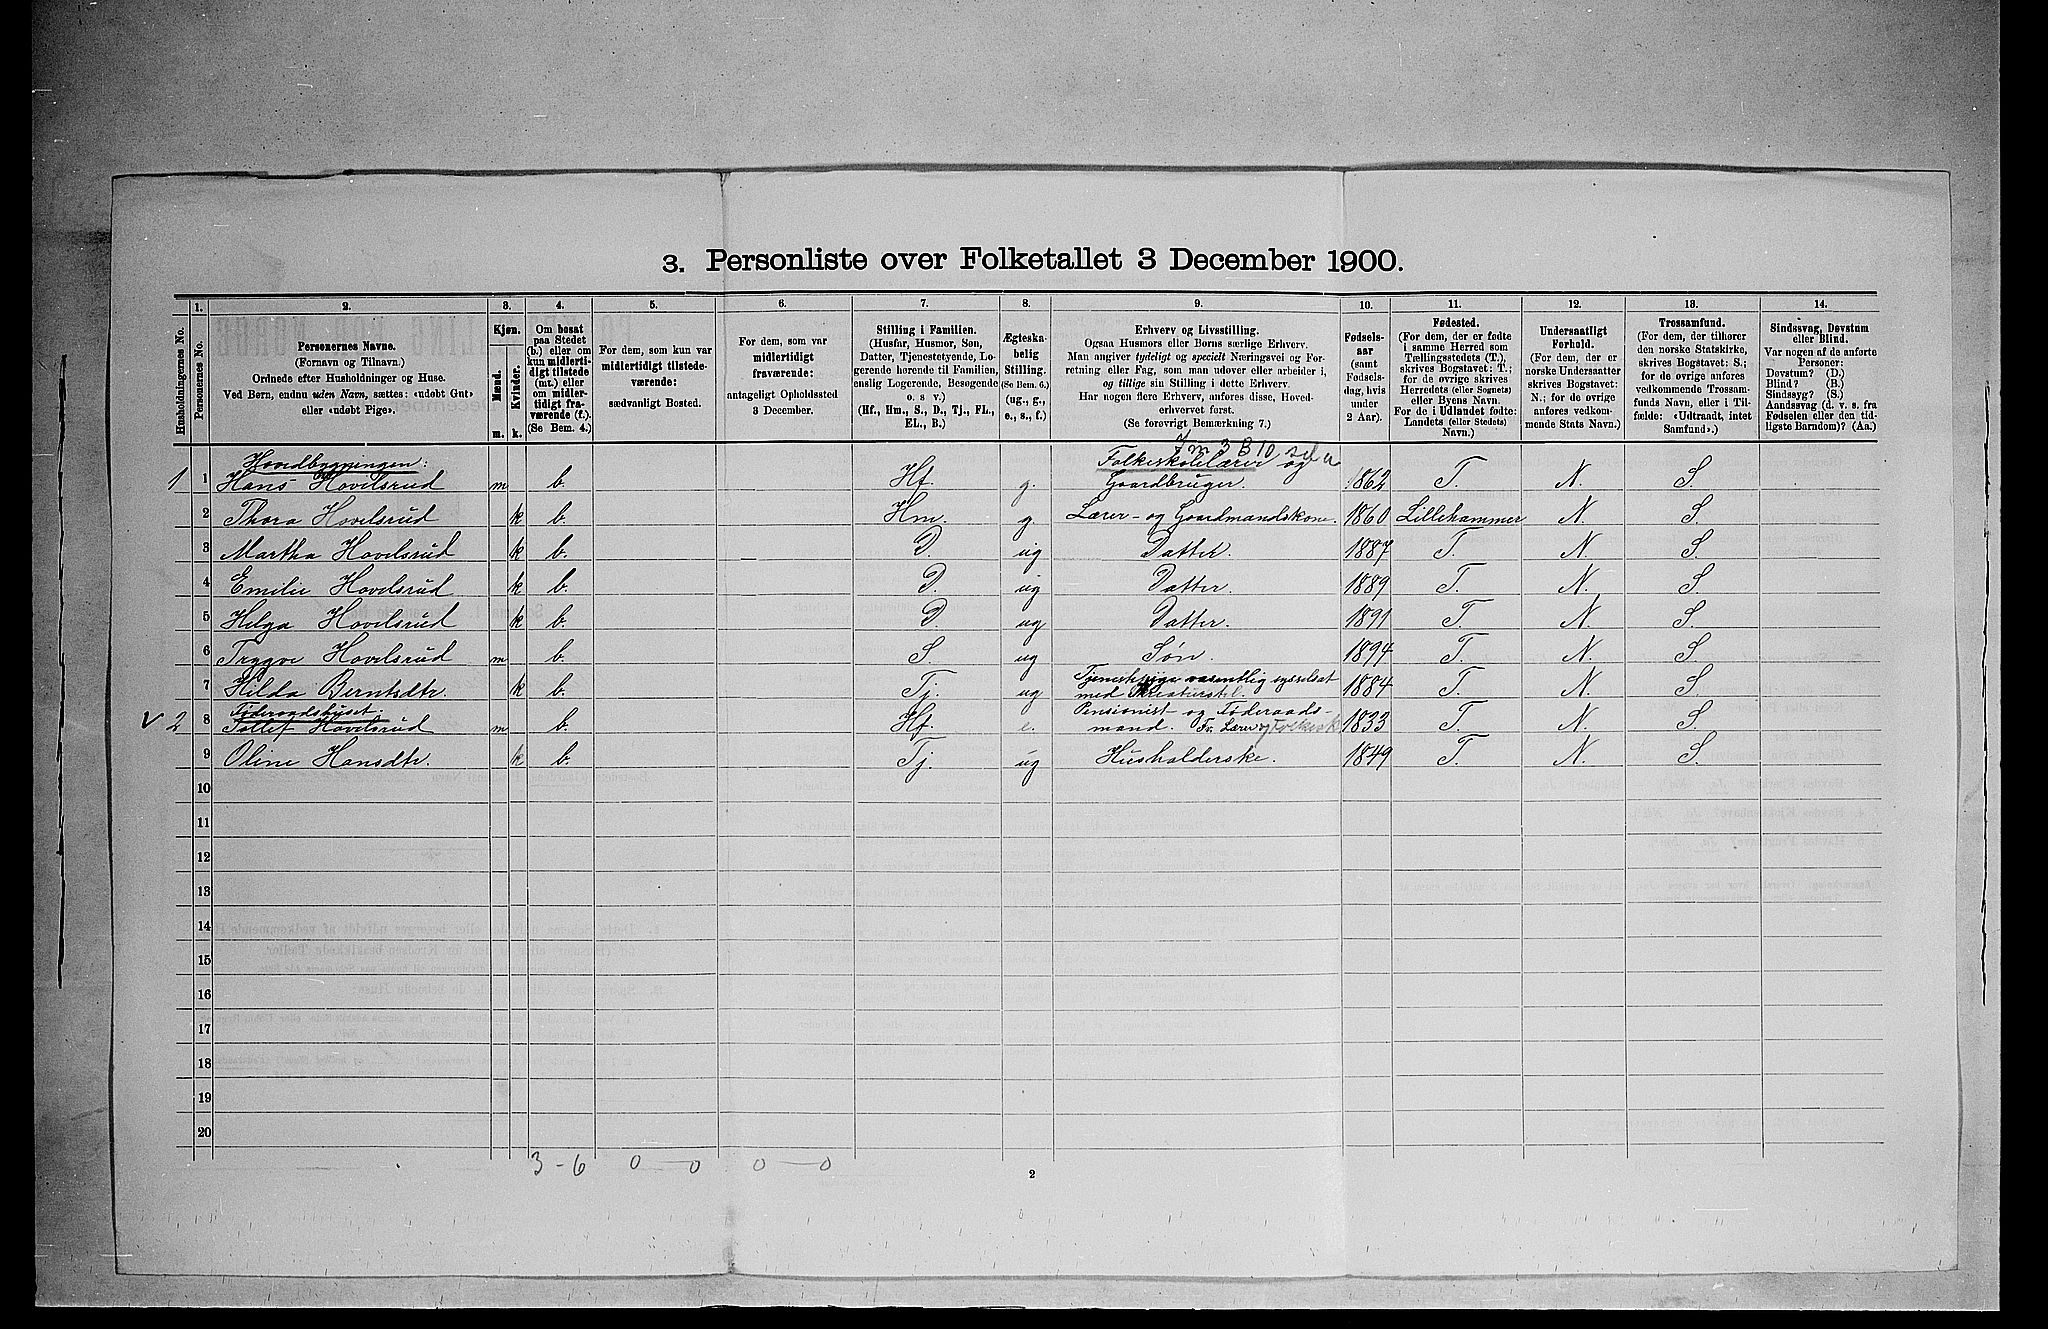 3. Personliste over Folketallet 3 December 1900.
Husholdningernes No.
1.
Personernes No.
2.
Personernes Navne.
(Fornavn og Tilnavn.)
Ordnede efter Husholdninger og Huse.
Ved Børn, endnu uden Navn, sættes: «udøbt Gut»
eller «udøbt Pige».
3.
Kjøn.
Mænd.
Kvinder.
m. k.
4.
Om bosat
paa Stedet
(b.) eller om
kun midlerti-
digt tilstede
(mt.) eller
om midler-
tidigt fra-
værende (f.).
(Se Bem. 4.)
5.
For dem, som kun var
midlertidigt tilstede-
værende:
sædvanligt Bosted.
6.
For dem, som var
midlertidigt
fraværende:
antageligt Opholdssted
3 December.
7.
Stilling i Familien.
(Husfar, Husmor, Søn,
Datter, Tjenestetyende, Lo-
gerende hørende til Familien,
enslig Logerende, Besøgende
o. s. v.)
(Hf., Hm., S., D., Tj., FL.,
EL., B.)
8.
Ægteska-
belig
Stilling.
(Se Bem. 6.)
(ug., g.,
e., s., f.)
9.
Erhverv og Livsstilling.
Ogsaa Husmors eller Børns særlige Erhverv.
Man angiver tydeligt og specielt Næringsvei og For-
retning eller Fag, som man udøver eller arbeider i,
og tillige sin Stilling i dette Erhverv.
Har nogen flere Erhverv, anføres disse, Hoved-
erhvervet først.
(Se forøvrigt Bemærkning 7.)
10.
Fødsels-
aar
(samt
Fødsels-
dag, hvis
under
2 Aar).
11.
Fødested.
(For dem, der er fødte
i samme Herred som
Tællingsstedets (T.),
skrives Bogstavet: T.;
for de øvrige skrives
Herredets (eller Sognets)
eller Byens Navn.
For de i Udlandet fødte:
Landets (eller Stedets)
Navn.)
12.
Undersaatligt
Forhold.
(For dem, der er
norske Undersaatter
skrives Bogstavet:
N.; for de øvrige
anføres vedkom-
mende Stats Navn.)
13.
Trossamfund.
(For dem, der tilhører
den norske Statskirke,
skrives Bogstavet: S.;
for de øvrige anføres
vedkommende Trossam-
funds Navn, eller i Til-
fælde: «Udtraadt, intet
Samfund».)
14.
Sindssvag, Døvstum
eller Blind.
Var nogen af de anførte
Personer:
Døvstum? (D.)
Blind? (B.)
Sindssyg? (S.)
Aandssvag (d. v. s. fra
Fødselen eller den tid-
ligste Barndom)? (Aa.)
Hovedbygningen: Folkeskolelærer og
1 1 Hans Hovelsrud m b. Hf. g. Gaardbruger. 1862 T. N. S.
2 Thora Hovelsrud k b. Hm. g. Lærer- og Gaardmandskone. 1860 Lillehammer N. S.
3 Martha Hovelsrud k b. D. ug Datter. 1887 T. N. S.
4 Emilie Hovelsrud k b. D. ug Datter. 1889 T. N. S.
5 Helga Hovelsrud k b. D. ug Datter. 1891 T. N. S.
6 Trygve Hovelsrud m b. S. ug Søn. 1894 T. N. S.
Tjenestepige væsentlig sysselsat
7 Hilda Berntsdtr. k b. Tj. ug med Kreaturstel. 1884 T. N. S.
Føderaadshuset. Pensionist- og Føderaads-
v 2 8 Tollef Hovelsrud m b. Hf. e. mand. Fv. Lærer 1833 T. N. S.
9 Oline Hansdtr. k b. Tj. ug Husholderske. 1849 T. N. S.
10
11
12
13
14
15
16
17
18
19
20
3-6 0-0 0-0
2